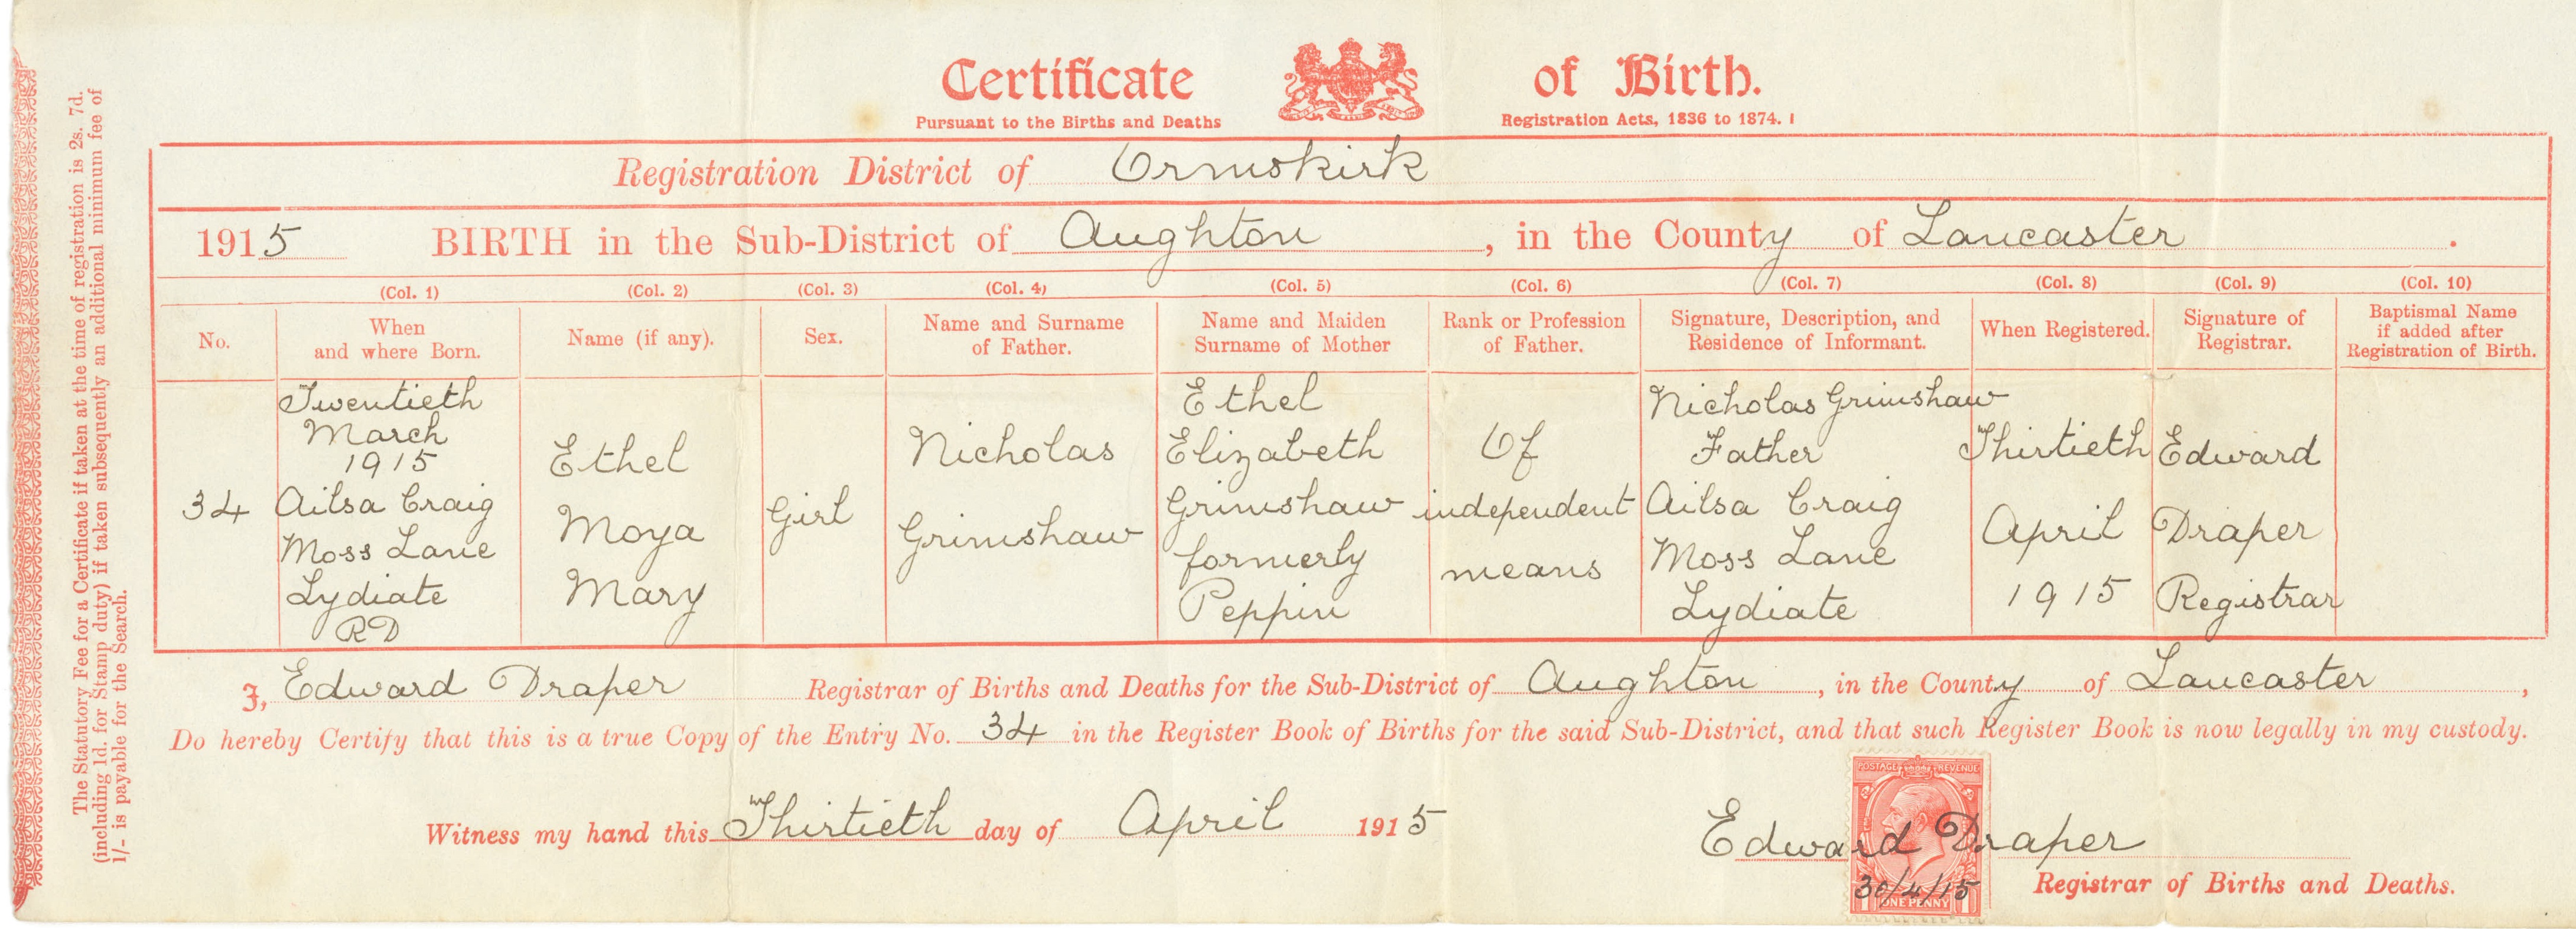 Certificate of Birth.
Pursuant to the Births and Deaths Registration Acts, 1836 to 1874.
Registration District of Ormskirk
1915 BIRTH in the Sub-District of Aughton, in the County of Lancaster.
(Col. 1) (Col. 2) (Col. 3) (Col. 4) (Col. 5) (Col. 6) (Col. 7) (Col. 8) (Col. 9) (Col. 10)
No.
When
and where Born.
Name (if any).
Sex.
Name and Surname
of Father.
Name and Maiden
Surname of Mother
Rank or Profession
of Father.
Signature, Description, and
Residence of Informant.
When Registered.
Signature of
Registrar.
Baptismal Name
if added after
Registration of Birth.
34
Twentieth
March
1915
Ailsa Craig
Moss Lane
Lydiate
RD
Ethel
Moya
Mary
Girl
Nicholas
Grimshaw
Ethel
Elizabeth
Grimshaw
formerly
Peppin
Of
independent
means
Nicholas Grimshaw
Father
Ailsa Craig
Moss Lane
Lydiate
Thirtieth
April
1915
Edward
Draper
Registrar
I, Edward Draper Registrar of Births and Deaths for the Sub-District of Aughton, in the County of Lancaster,
Do hereby Certify that this is a true Copy of the Entry No. 34 in the Register Book of Births for the said Sub-District, and that such Register Book is now legally in my custody.
Witness my hand this Thirtieth day of April 1915
Edward Draper
Registrar of Births and Deaths.
POSTAGE REVENUE
30/4/15
ONE PENNY
The Statutory Fee for a Certificate if taken at the time of registration is 2s. 7d.
(including 1d. for Stamp duty) if taken subsequently an additional minimum fee of
1/- is payable for the Search.